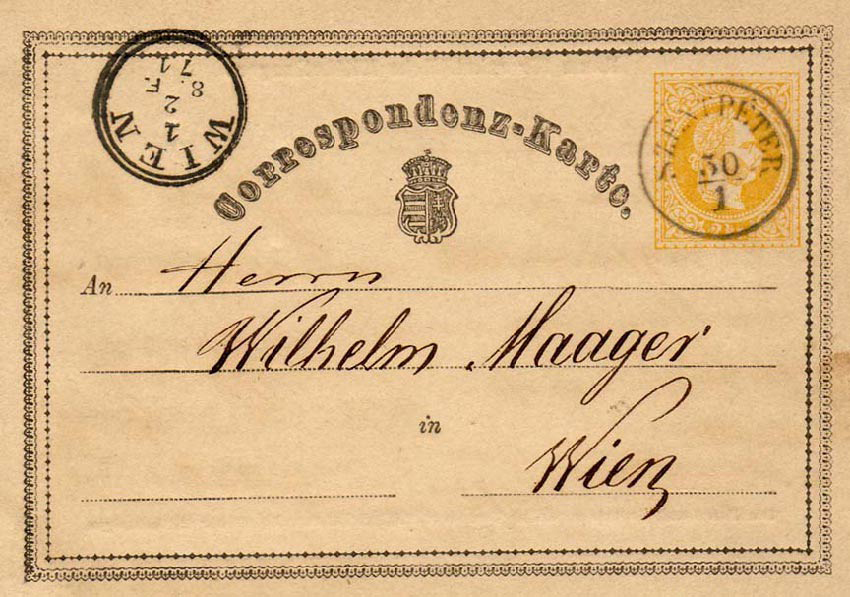 WIEN
1
2 F.
8. 71
Correspondenz-Karte.
30
1
An Herrn
Wilhelm Maager
in
Wien